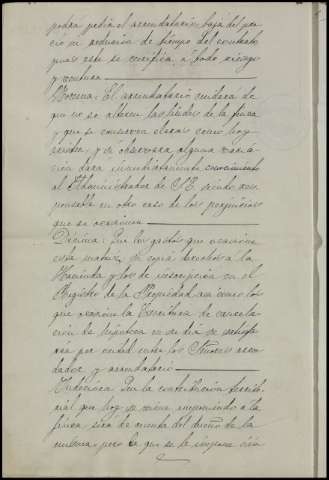 podrá pedir el arrendatario baja del pre-
cio ni reducción de tiempo del contrato
pues este se verifica a todo riesgo
y ventura
Novena: El arrendatario cuidará de
que no se alteren las lindes de la finca
y que se conserven claras como hoy
están, y si observara alguna varia-
ción dará inmediatamente conocimiento
al Administrador de S.E. siendo res-
ponsable en otro caso de los perjuicios
que se ocasionen
Décima: Que los gastos que ocasione
esta matriz, su copia derechos a la
Hacienda y los de inscripción en el
Registro de la Propiedad, así como los
que ocasione la Escritura de cancela-
ción de hipoteca en su día se satisfa-
rán por mitad entre los Señores arren-
dador y arrendatario
Undécima: Que la contribución territo-
rial que hoy se viene imponiendo a la
finca, será de cuenta del dueño de la
misma, pero la que se le imponga con